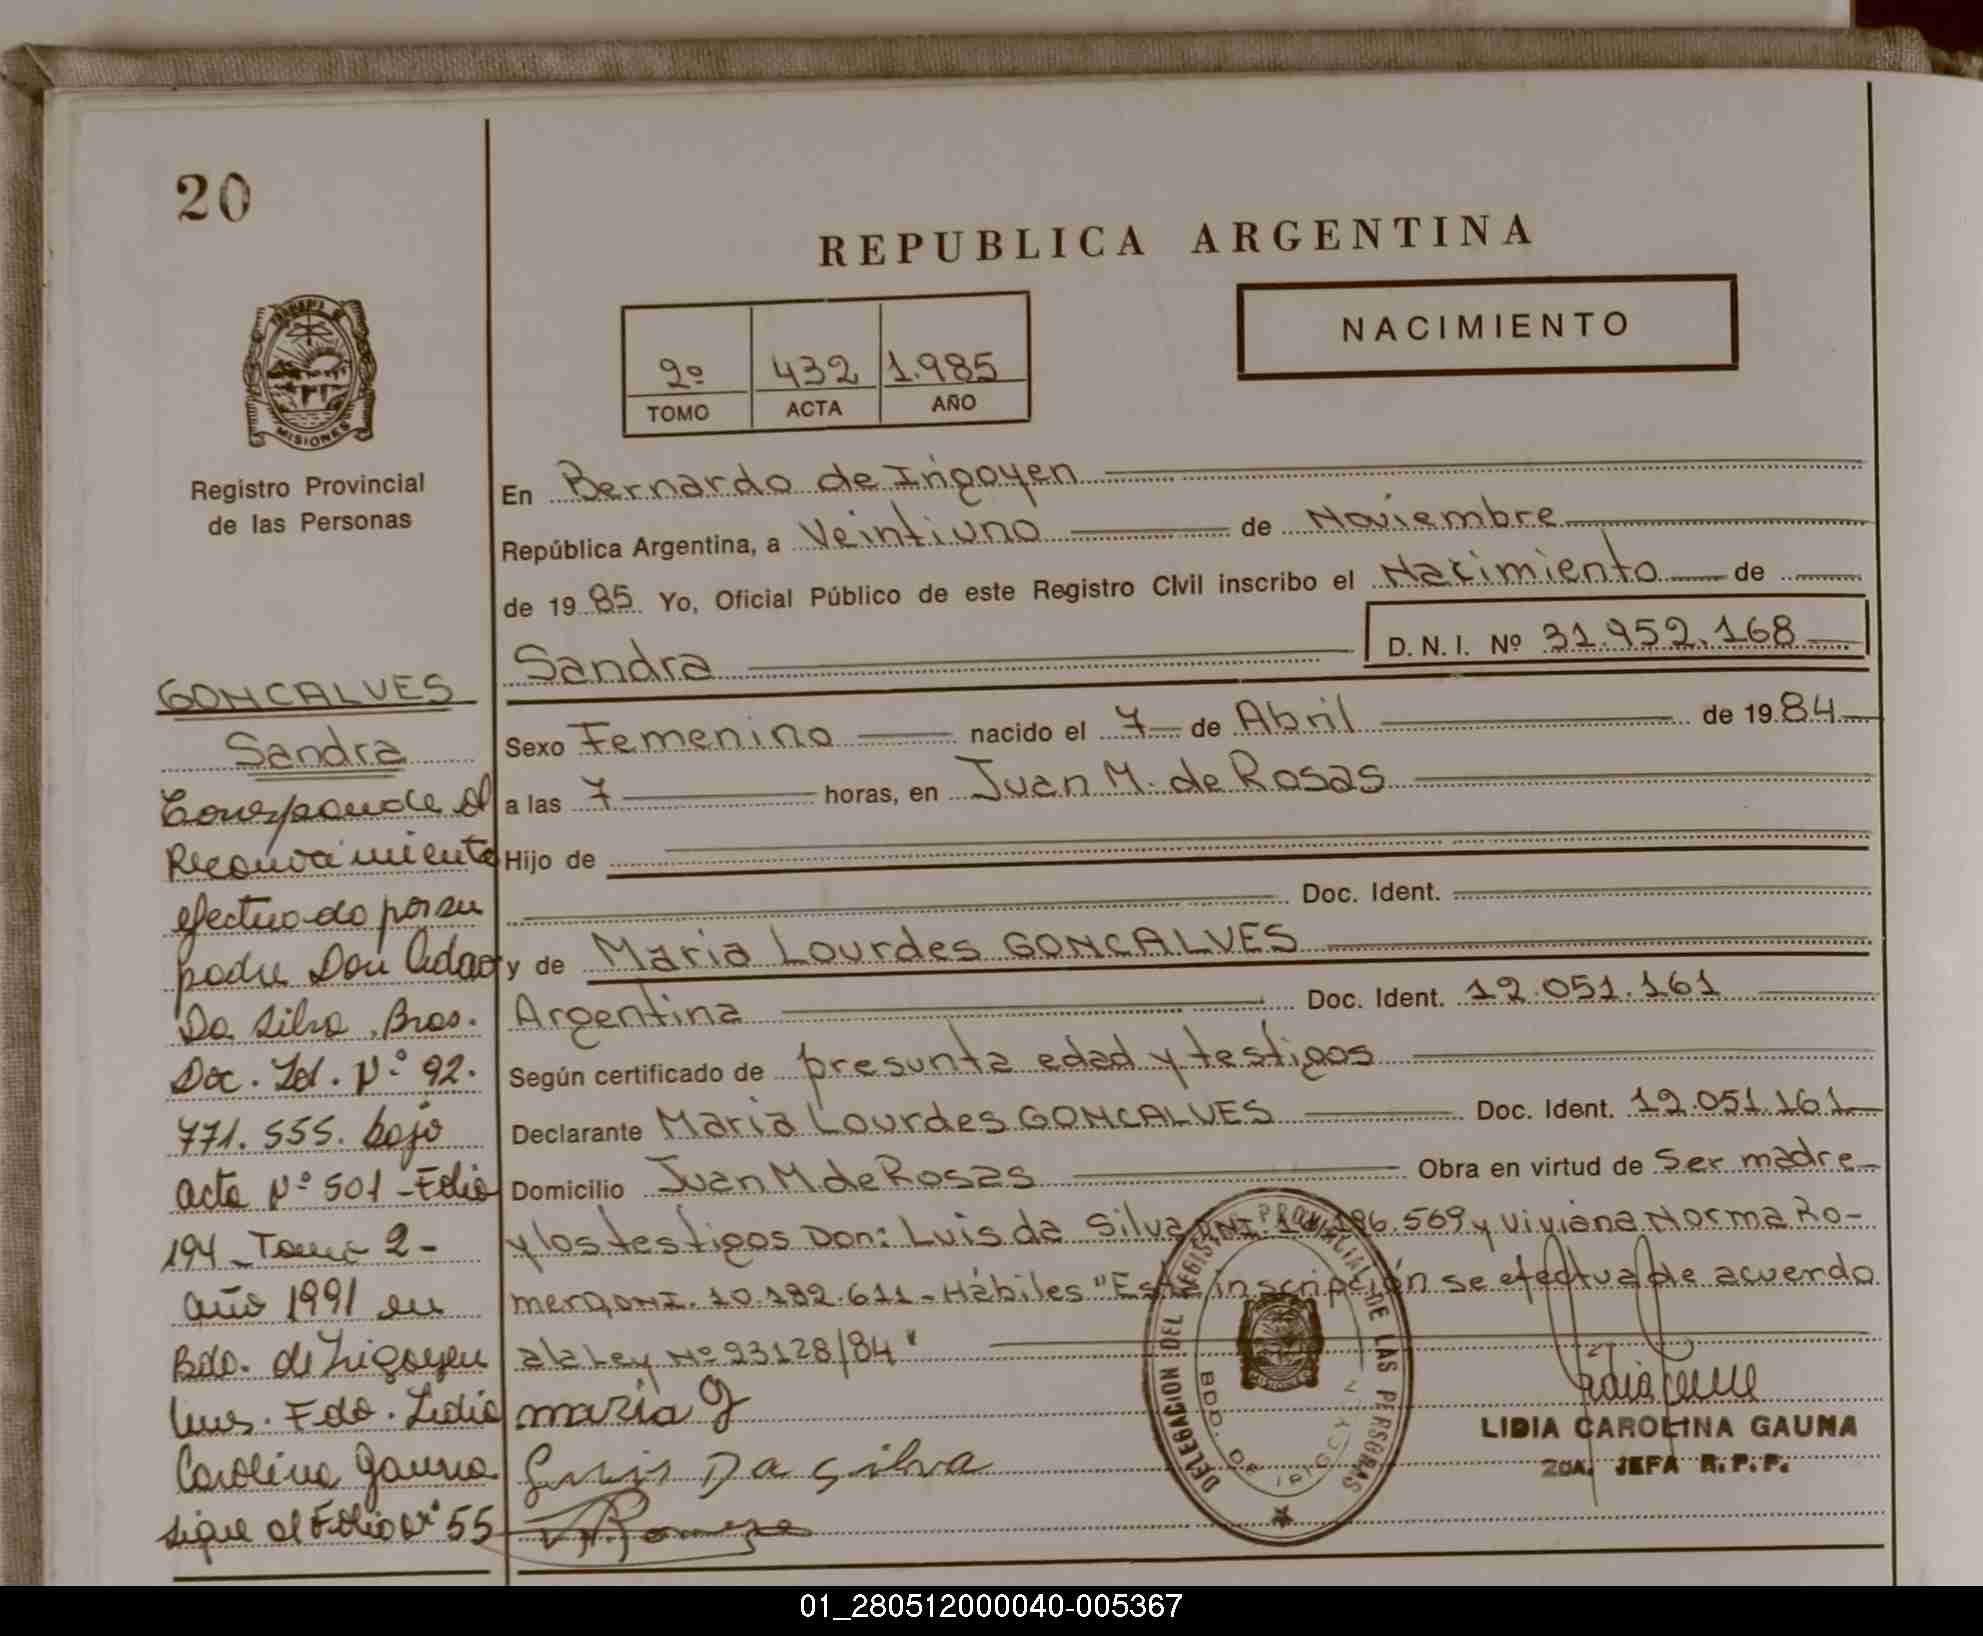 20
REPUBLICA ARGENTINA
NACIMIENTO
2º 432 1.985
TOMO ACTA AÑO
MISIONES
Registro Provincial
de las Personas
En Bernardo de Irigoyen
República Argentina, a Veintiuno de Noviembre
de 1985 Yo, Oficial Público de este Registro Civil inscribo el Nacimiento de
Sandra D.N.I. Nº 31.952.168
Sexo Femenino nacido el 7 de Abril de 1984
a las 7 horas, en Juan M. de Rosas
Hijo de
Doc. Ident.
y de Maria Lourdes GONCALVES
Argentina Doc. Ident. 12.051.161
Según certificado de presunta edad y testigos
Declarante Maria Lourdes GONCALVES Doc. Ident. 12.051.161
Domicilio Juan M de Rosas Obra en virtud de Ser madre
y los testigos Don: Luis da Silva DNI. 196.569 y Viviana Norma Ro-
mero DNI. 10.182.611 - Hábiles "Esta inscripción se efectua de acuerdo
a la Ley Nº 23128/84"
maria g
Luis Da Silva
Lidia
LIDIA CAROLINA GAUNA
2DA. JEFA R.P.P.
DELEGACION DEL REGISTRO PROVINCIAL DE LAS PERSONAS
BDO. DE IRIGOYEN
GONCALVES
Sandra
Corresponde al
Reconocimiento
efectuado por su
padre Don Adao
Da Silva. Bras.
Doc. Id. Nº 92.
771.555. bajo
acta Nº 501 - Folio
194 - Tomo 2 -
año 1991 en
Bdo. de Irigoyen
Mnes. Fdo. Lidia
Carolina Gauna
sigue al Folio Nº 55
01_280512000040-005367